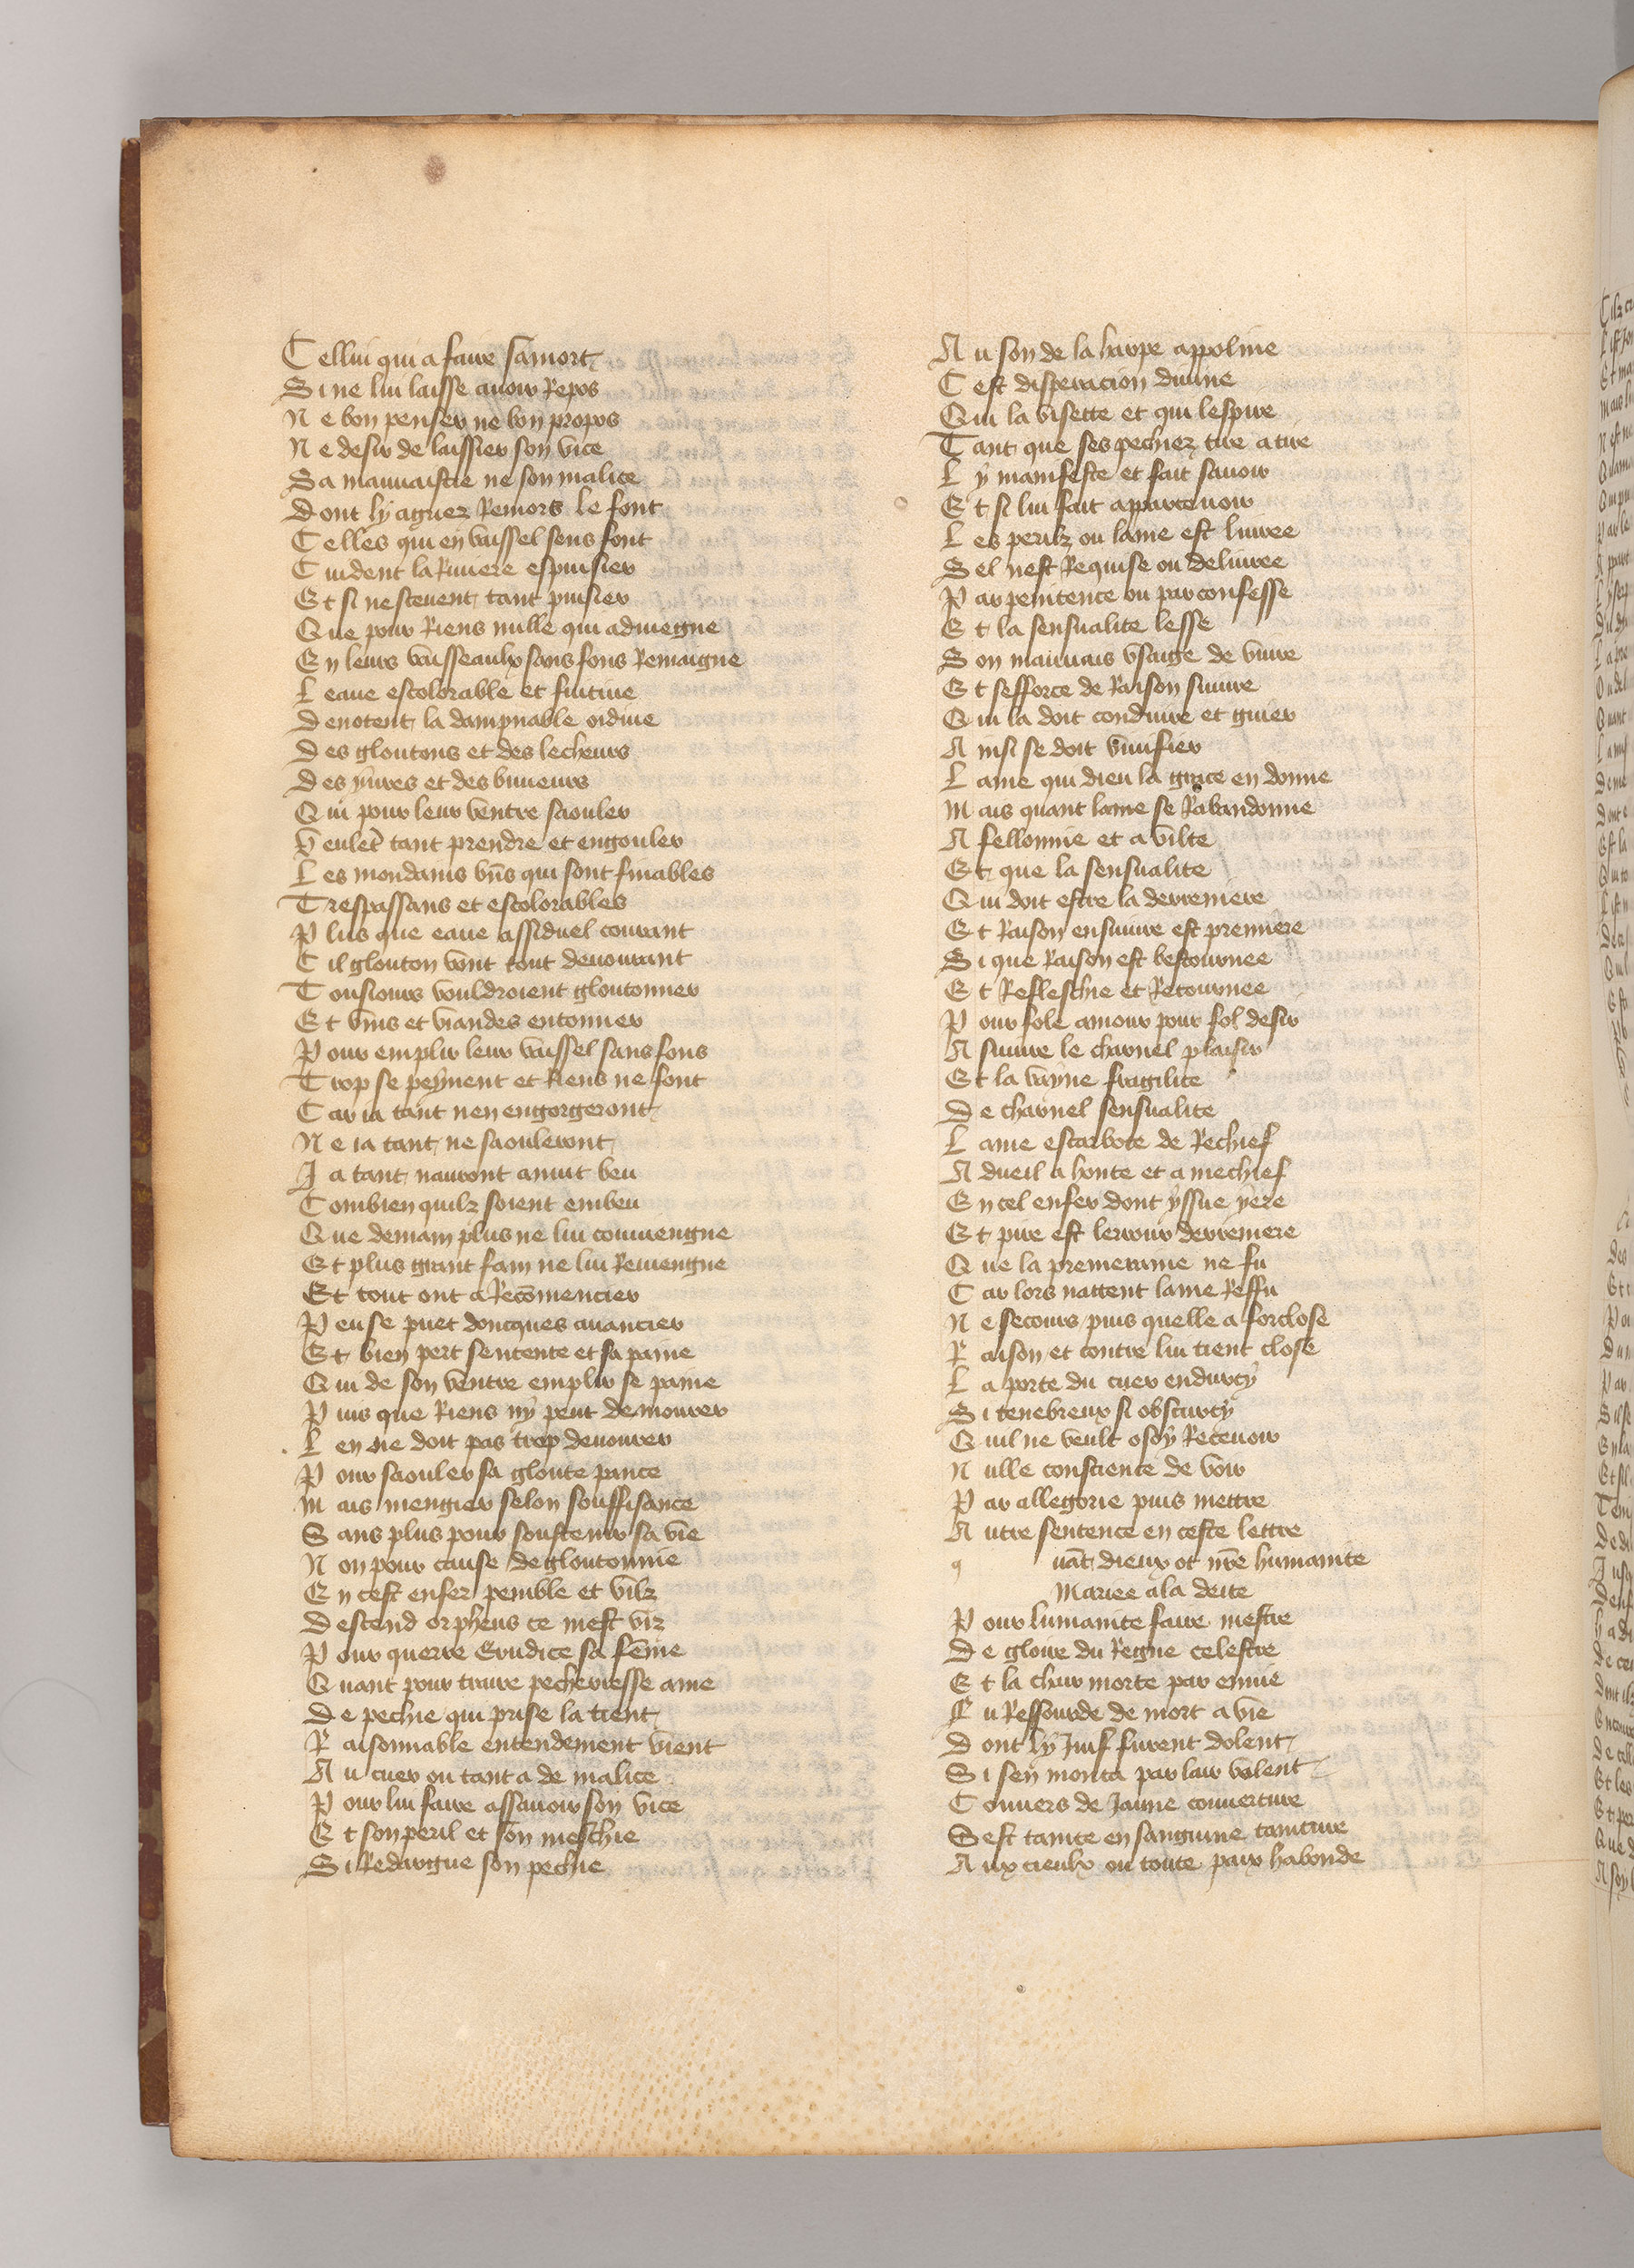 Cellui qui a faire sa mort
Si ne lui laisse auoir Repos
Ne bon penser ne bon propos
Ne desir de laissier son vice
Sa mauuaistie ne son malice
Dont ly aguez Remors le font
Celles qui en vaissel sens font
Cuident la Riuiere espuisier
Et si ne sceuent tant puisier
Que pour Riens nulle qui aduiegne
En leurs vaisseaulx sans fons Remaigne
Leaue escolorable et fuitiue
Denotent la dampnable oidiue
Des gloutons et des lecheurs
Des yures et des buueurs
Qui pour leur ventre saouler
Veulẽt tant prendre et engouler
Les mondains bñs qui sont finables
Trespassans et escolorables
Plus que eaue assiduel courant
Cil glouton vont tout deuourant
Tousiours vouldroient gloutonner
Et vins et viandes entonner
Pour emplir leur vaissel sans fons
Trop se peynent et Riens ne font
Car ia tant nen engorgeront
Ne ia tant ne saouleront
Ja tant nauront anuit beu
Combien quilz soient embeu
Que demain plus ne lui conuiengne
Et plus grant fain ne lui Reuiengne
Et tout ont a Recõmencier
Peu se puet doncques auancier
Et bien pert sentente et sa paine
Qui de son ventre emplir se paine
Puis que Riens ny peut demourer
Len ne doit pas trop deuourer
Pour saouler sa gloute pance
Mais mengier selon souffisance
Sans plus pour soustenir sa vie
Non pour cause de gloutonnie
En cest enfer penible et vilz
Descend orpheus ce mest viz
Pour querre Erudice sa fẽme
Quant pour traire pecheresse ame
De pechie qui prise la tient
Raisonnable entendement vient
Au cuer ou tant a de malice
Pour lui faire assauoir son vice
Et son peril et son meschie
Si Redargue son pechie
Au son de la harpe appoline
Cest disperacion diuine
Qui la visette et qui lespire
Tant que ses pechiez tire a tire
Ly manifeste et fait sauoir
Et si lui fait apparceuoir
Les perilz ou lame est liuree
Sel nest Requise ou deliuree
Par penitence ou par confesse
Et la sensualite lesse
Son mauuais vsaige de viure
Et sefforce de Raison suiure
Qui la doit conduire et guier
Ainsi se doit viuifier
Lame qui dieu la grace en donne
Mais quant lame se Rabandonne
A fellonnie et a vilte
Et que la sensualite
Qui doit estre la derreniere
Et Raison ensuiure est premiere
Si que Raison est bestournee
Et Reflesche et Retournee
Pour fole amour pour fol desir
A suiure le charnel plaisir
Et la vayne fragilite
De charnel sensualite
Lame escarbote de Rechief
A dueil a honte et a mechief
En cel enfer dont yssue yere
Et pire est lerrour derreniere
Que la premeraine ne fu
Car lors nattent lame Reffu
Ne secours puis quelle a forclose
Raison et contre lui tient close
La porte du cuer endurcy
Si tenebreux si obscurcy
Quil ne veult o soy Receuoir
Nulle conscience de voir
Par allegorie puis mettre
Autre sentence en ceste lettre
quãt dieux ot nr̃e humanite
Mariee a la deite
Pour lumanite faire mestre
De gloire du Regne celestre
Et la char morte par enuie
Fu Ressourde de mort a vie
Dont ly Juif furent dolent
Si sen monta par lair volent
Couuers de Jaune couuerture
Sest tainte en sanguine tainture
Aux cieulx ou toute paix habonde